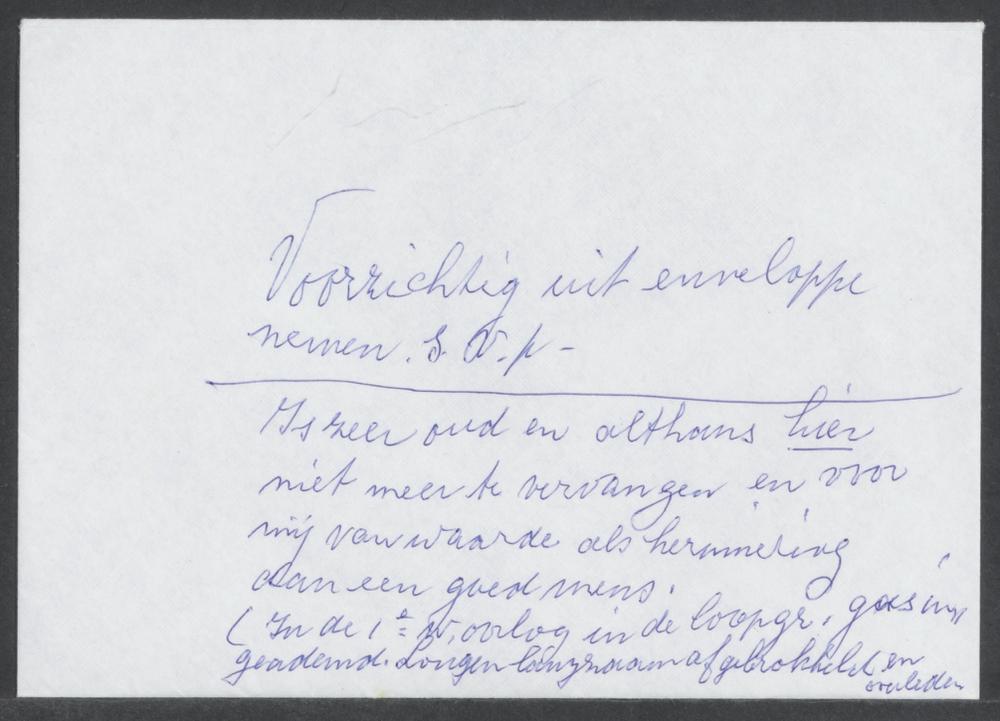 Voorzichtig uit enveloppe
nemen. S.V.p-
Is zeer oud en althans hier
niet meer te vervangen en voor
mij van waarde als herinnering
aan een goed mens.
(In de 1e w.oorlog in de loopgr. gas in
geademd. Longen langzaam afgebrokkeld en
overleden